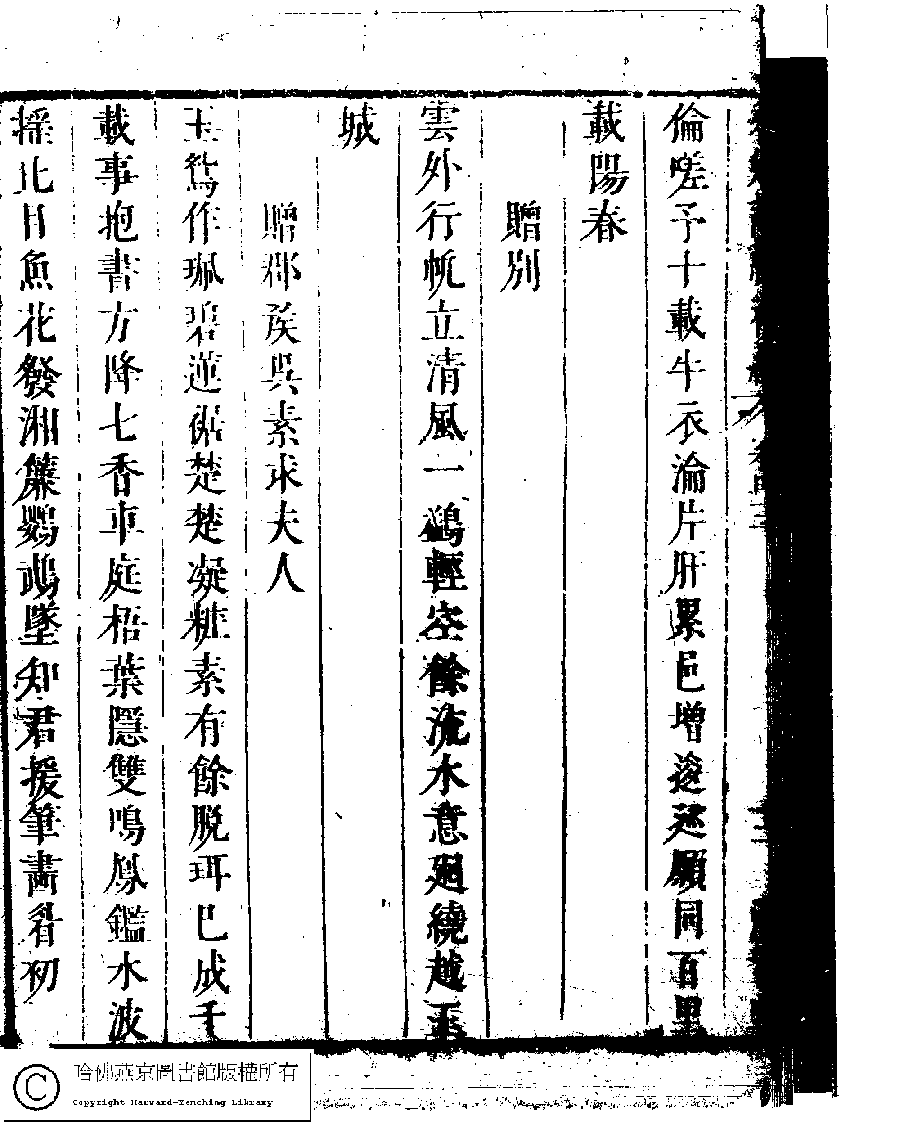 倫嗟予十載牛衣淪片肝累邑增逡巡願同百里
載陽春
贈別
雲外行帆立清風一鷁輕空餘流水意廻繞越王
城
贈郡矦吳素求夫人
玉鴛作珮碧蓮裾楚楚凝糚素有餘脫珥已成千
載事抱書方降七香車庭梧葉隱雙鳴鳳鑑水波
搖比目魚花發湘簾鸚鵡墜知君援筆畵眉初
哈佛燕京圖書館版權所有
Copyright Harvard-Yenching Library